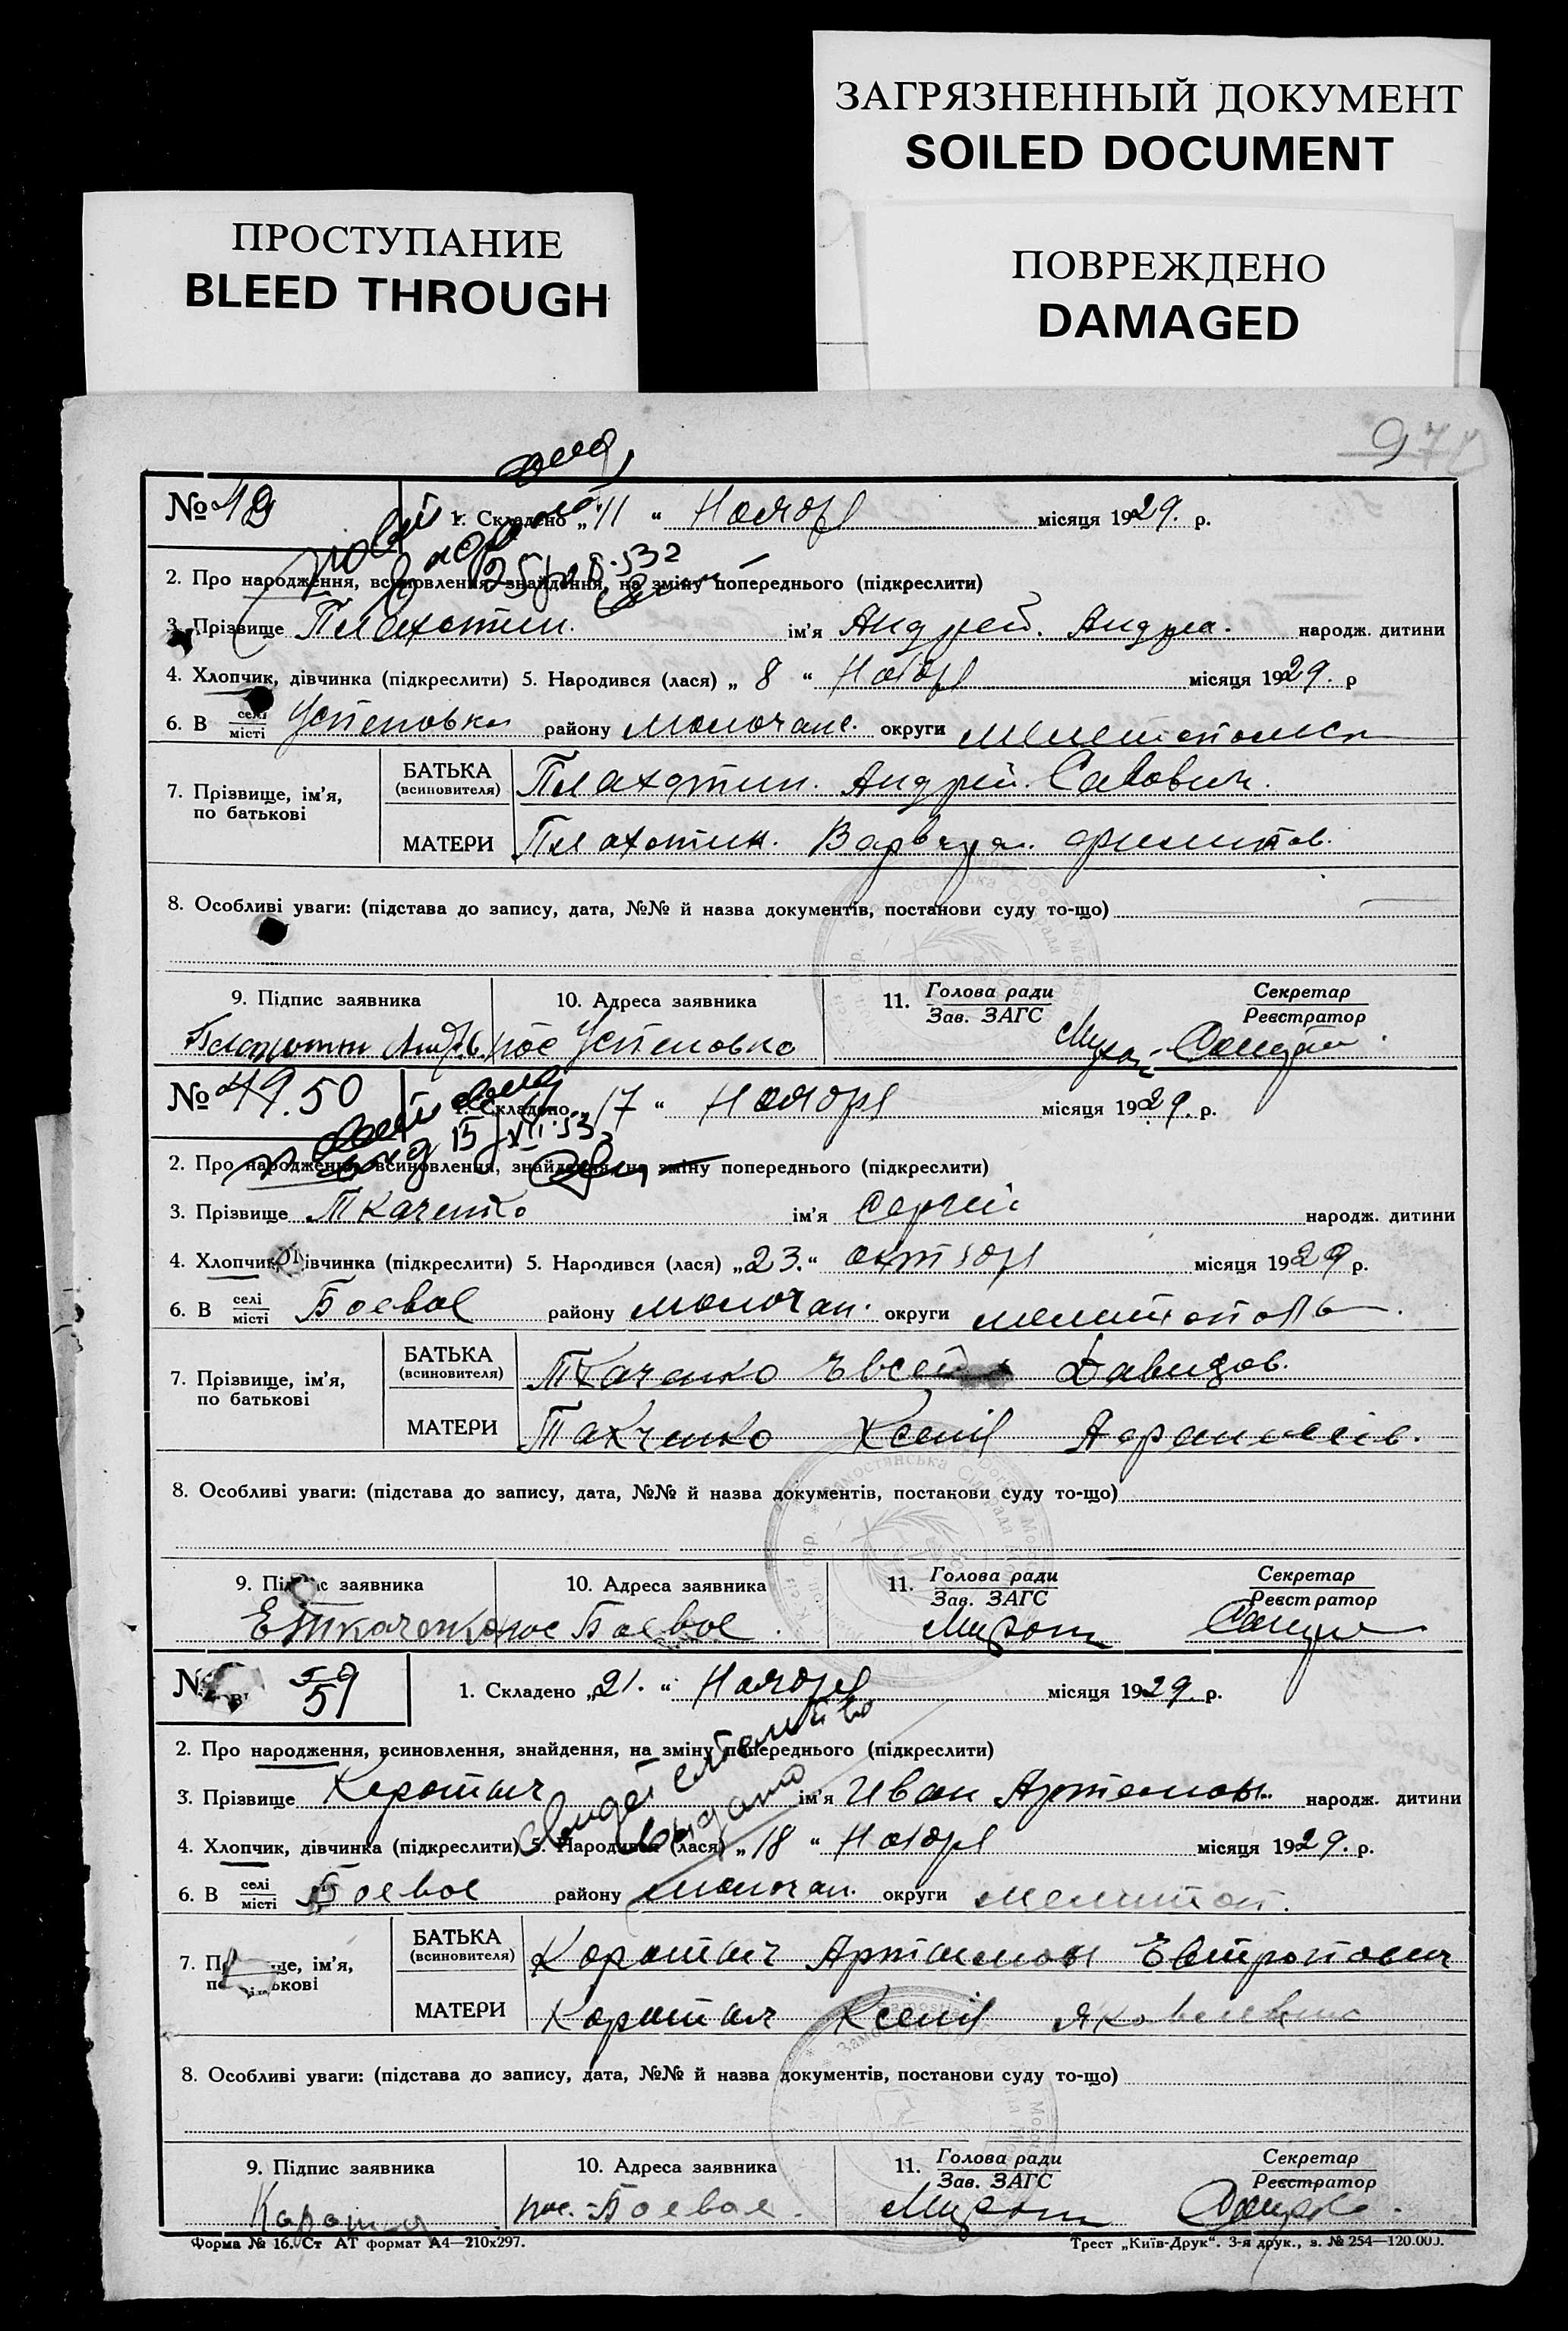 ЗАГРЯЗНЕННЫЙ ДОКУМЕНТ
SOILED DOCUMENT
ПРОСТУПАНИЕ
BLEED THROUGH
ПОВРЕЖДЕНО
DAMAGED
97
№ 49
1. Складено „11“ Ноября місяця 1929. р.
2. Про народження, всиновлення, знайдення, на зміну попереднього (підкреслити)
3. Прізвище Плахотин. ім'я Андрей. Андреа. народж. дитини
4. Хлопчик, дівчинка (підкреслити) 5. Народився (лася) „8“ Ноября місяця 1929. р
6. В селі місті Успеновка району Молочанс. округи
7. Прізвище, ім'я, по батькові
БАТЬКА (всиновителя) Плахотин. Андрей. Савович.
МАТЕРИ Плахотин. Варвара.
8. Особливі уваги: (підстава до запису, дата, №№ й назва документів, постанови суду то-що)
9. Підпис заявника
10. Адреса заявника
11. Голова ради Зав. ЗАГС
Секретар Реєстратор
пос Успеновка
№ 49.50
1. Складено „17“ Ноября місяця 1929. р.
2. Про народження, всиновлення, знайдення, на зміну попереднього (підкреслити)
3. Прізвище Ткаченко ім'я Сергей народж. дитини
4. Хлопчик, дівчинка (підкреслити) 5. Народився (лася) „23.“ октября місяця 1929 р.
6. В селі місті Боевое району Молочан. округи
7. Прізвище, ім'я, по батькові
БАТЬКА (всиновителя) Ткаченко Евсей Давидов.
МАТЕРИ Такченко Ксения
8. Особливі уваги: (підстава до запису, дата, №№ й назва документів, постанови суду то-що)
9. Підпис заявника
10. Адреса заявника
11. Голова ради Зав. ЗАГС
Секретар Реєстратор
Е Ткаченко пос Боевое.
№ 51
1. Складено „21.“ Ноября місяця 1929. р.
2. Про народження, всиновлення, знайдення, на зміну попереднього (підкреслити)
3. Прізвище Коротыч ім'я Иван Артемовы. народж. дитини
4. Хлопчик, дівчинка (підкреслити) 5. Народився (лася) „18“ Ноября місяця 1929. р.
6. В селі місті Боевое району Молочан. округи Мелитоп.
7. Прізвище, ім'я, по батькові
БАТЬКА (всиновителя) Коротыч Евтропович
МАТЕРИ Коротыч Ксения Яковлевна
8. Особливі уваги: (підстава до запису, дата, №№ й назва документів, постанови суду то-що)
9. Підпис заявника
10. Адреса заявника
11. Голова ради Зав. ЗАГС
Секретар Реєстратор
пос. Боевое.
Форма № 16. Ст АТ формат А4—210х297.
Трест „Київ-Друк“. 3-я друк., з. № 254—120.000.